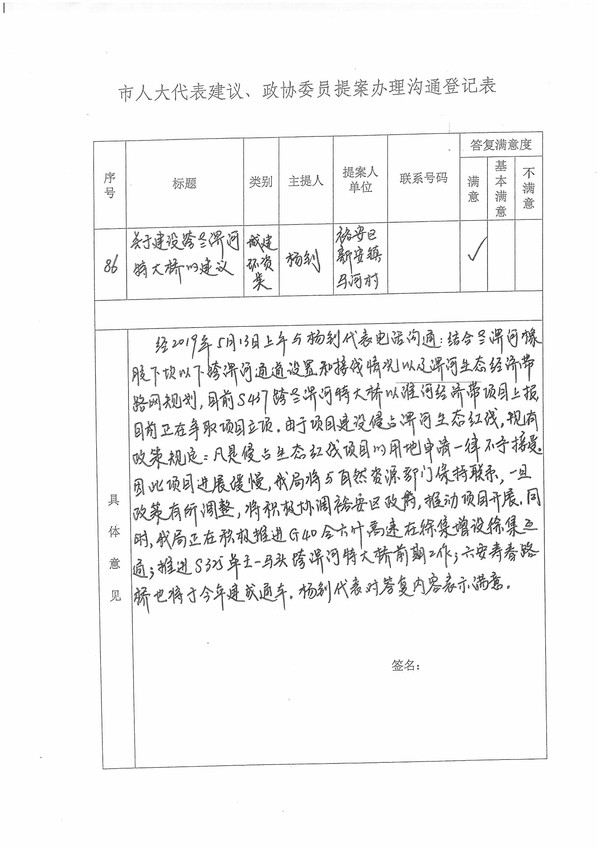 市人大代表建议、政协委员提案办理沟通登记表
序号 标题 类别 主提人 提案人单位 联系号码 答复满意度
满意 基本满意 不满意
86 关于建设跨老淠河特大桥的建议 城建环资类 杨钊 裕安区新安镇马河村 ✓
具体意见
经2019年5月13日上午与杨钊代表电话沟通:结合老淠河橡
胶下坝以下跨淠河通道设置和接线情况以及淠河生态经济带
路网规划,目前S437跨老淠河特大桥以淮河经济带项目上报,
目前正在争取项目立项。由于项目建设侵占淠河生态红线,现有
政策规定:凡是侵占生态红线项目的用地申请一律不予接受。
因此项目进展缓慢,我局将与自然资源部门保持联系,一旦
政策有所调整,将积极协调裕安区政府,推动项目开展。同
时,我局正在积极推进G40合六叶高速在徐集增设徐集互
通;推进S325单王-马头跨淠河特大桥前期工作;六安寿春路
桥也将于今年建成通车。杨钊代表对答复内容表示满意。
签名: